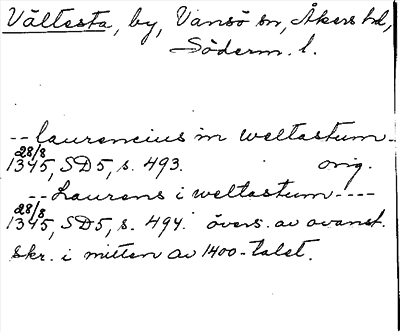 Vältesta, by, Vansö sn, Åkers hd,
Söderm. l.
-- laurencius in weltastum--
28/8
1345, SD5, s. 493. orig.
-- Laurens i weltastum ----
28/8
1345, SD5, s. 494. övers. av ovanst.
skr. i mitten av 1400-talet.